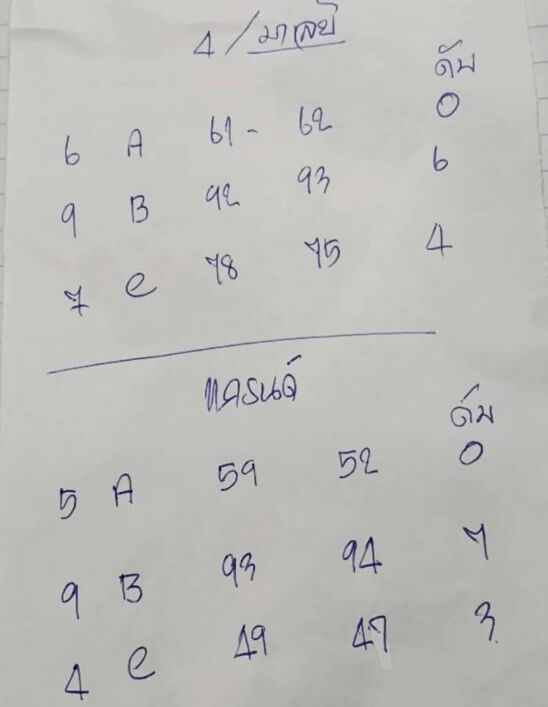 4/มาเลย์
ดับ
6 A 61 - 62 0
9 B 92 93 6
7 C 78 75 4
แกรนด์
ดับ
5 A 59 52 0
9 B 93 94 7
4 C 49 47 3